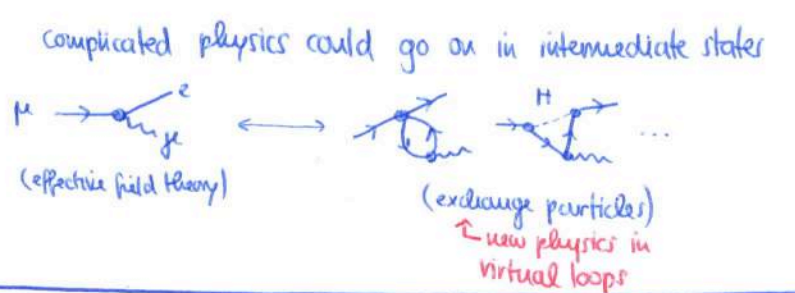 complicated physics could go on in intermediate states
μ e γ H ...
(effective field theory)
(exchange particles)
new physics in
virtual loops